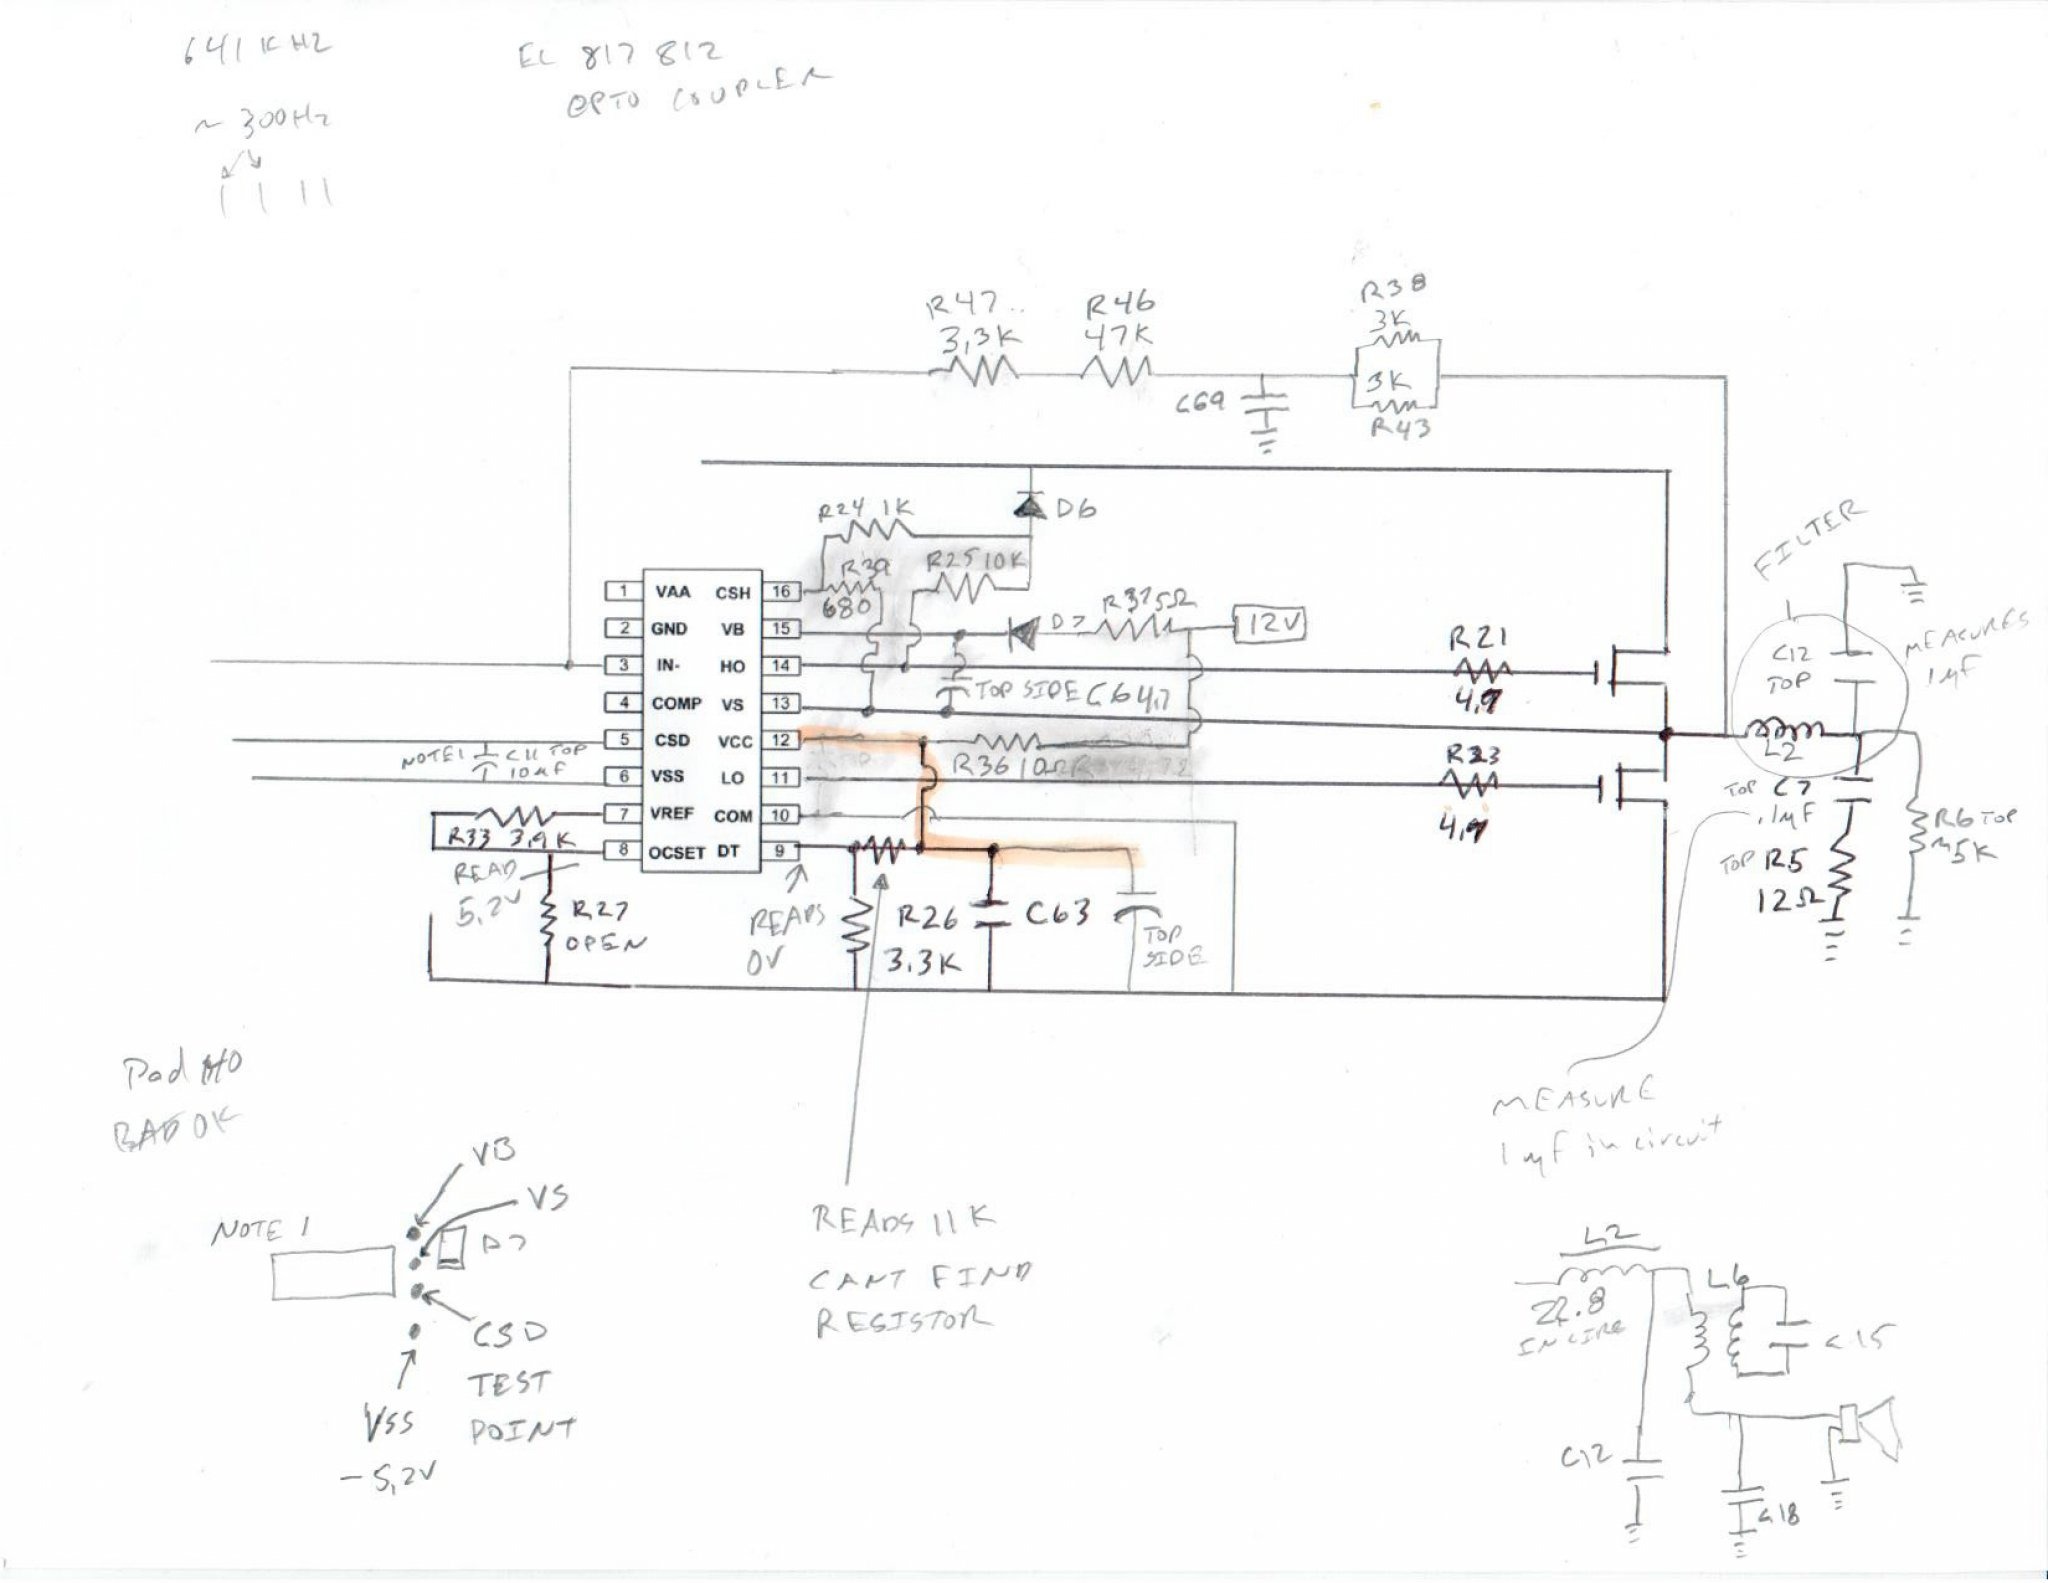 641 KHZ
EL 817 812
OPTO COUPLER
~ 300Hz
R47
3,3K
R46
47K
R38
3K
3K
R43
C69
R24 1K
D6
R39
680
R25 10K
FILTER
1 VAA CSH 16
2 GND VB 15
3 IN- HO 14
4 COMP VS 13
5 CSD VCC 12
6 VSS LO 11
7 VREF COM 10
8 OCSET DT 9
D7
5Ω
12V
TOP SIDE C64
R21
4,7
C12
TOP
MEASURES
1µF
NOTE 1
C11 TOP
10µF
R36 10Ω
R23
4,7
L2
TOP C7
.1µF
R6 TOP
~5K
TOP R5
12Ω
R33 3,9K
READ
5,2V
R27
OPEN
READS
0V
R26
3.3K
C63
TOP
SIDE
Pad HO
BAD OK
MEASURE
1 µF in circuit
VB
VS
NOTE 1
D7
CSD
TEST
POINT
VSS
-5,2V
READS 11K
CANT FIND
RESISTOR
L2
22.8
IN CIRC
L6
C15
C12
C18